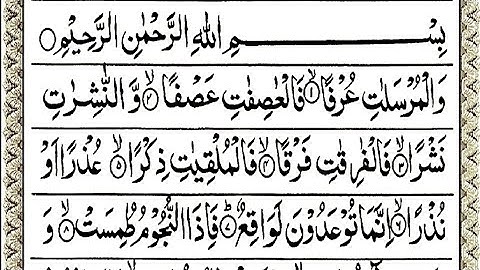 بِسْمِ اللهِ الرَّحْمٰنِ الرَّحِيْمِ
وَالْمُرْسَلٰتِ عُرْفًا ۙ﴿۱﴾ فَالْعٰصِفٰتِ عَصْفًا ۙ﴿۲﴾ وَّ النّٰشِرٰتِ
نَشْرًا ۙ﴿۳﴾ فَالْفٰرِقٰتِ فَرْقًا ۙ﴿۴﴾ فَالْمُلْقِيٰتِ ذِكْرًا ۙ﴿۵﴾ عُذْرًا اَوْ
نُذْرًا ۙ﴿۶﴾ اِنَّمَا تُوْعَدُوْنَ لَوَاقِعٌ ؕ﴿۷﴾ فَاِذَا النُّجُوْمُ طُمِسَتْ ۙ﴿۸﴾ وَ